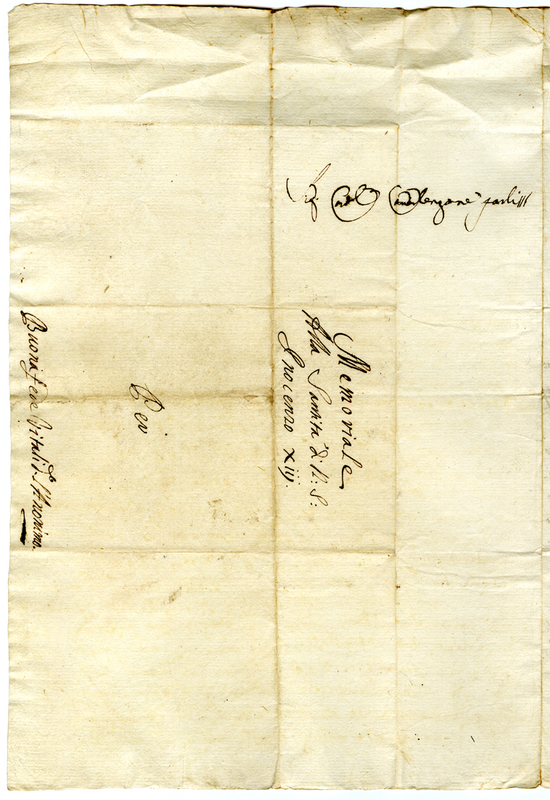 Card.l Camerlengone parli SS
Memoriale
Alla Santità di N: S:
Inocenzo xiij.
Per
Buonafede Vitali d.o l'Anonimo.